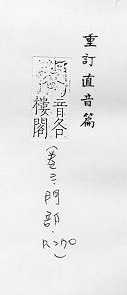 重訂直音篇
音各
樓閣
(卷三.門部.